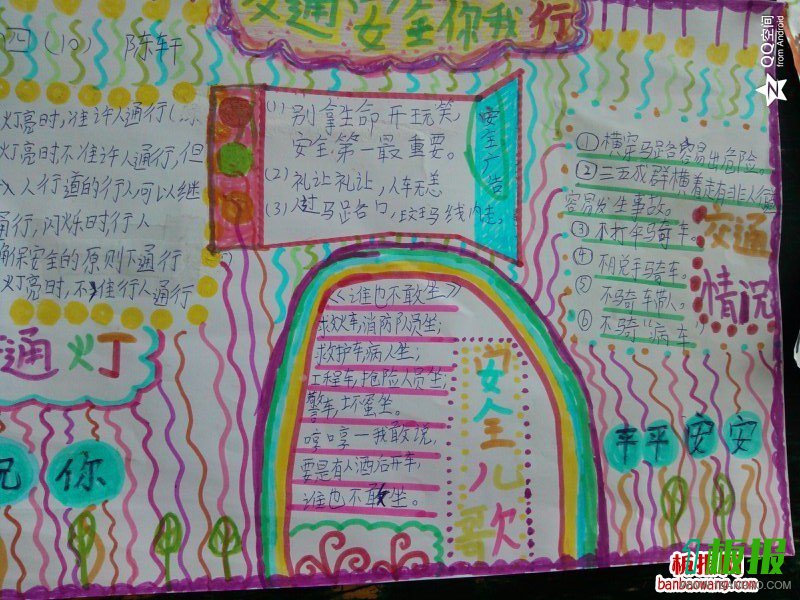 交通安全你我行
四(10) 陈轩
灯亮时,准许人通行(
灯亮时不准许人通行,但
入人行道的行人,可以继
通行,闪烁时,行人
确保安全的原则下通行
灯亮时,不准行人通行
通灯
你
(1) 别拿生命开玩笑,
安全第一最重要。
(2) 礼让礼让,人车无恙
(3) 过马路口,斑玛线内走。
安全广告
《谁也不敢坐》
求火车,消防队员坐;
救护车病人坐;
工程车,抢险人员坐;
警车,坏蛋坐。
哼哼一我敢说,
要是有人酒后开车,
谁也不敢坐。
安全儿歌
① 横穿马路容易出危险。
② 三五成群横着走有非人行道
容易发生事故。
③ 不打午马奇车。
④ 不兑手马奇车。
⑤ 不骑车带人。
⑥ 不骑“病车”
交通
情况
平平安安
QQ空间
from Android
板报
banbaowang.com